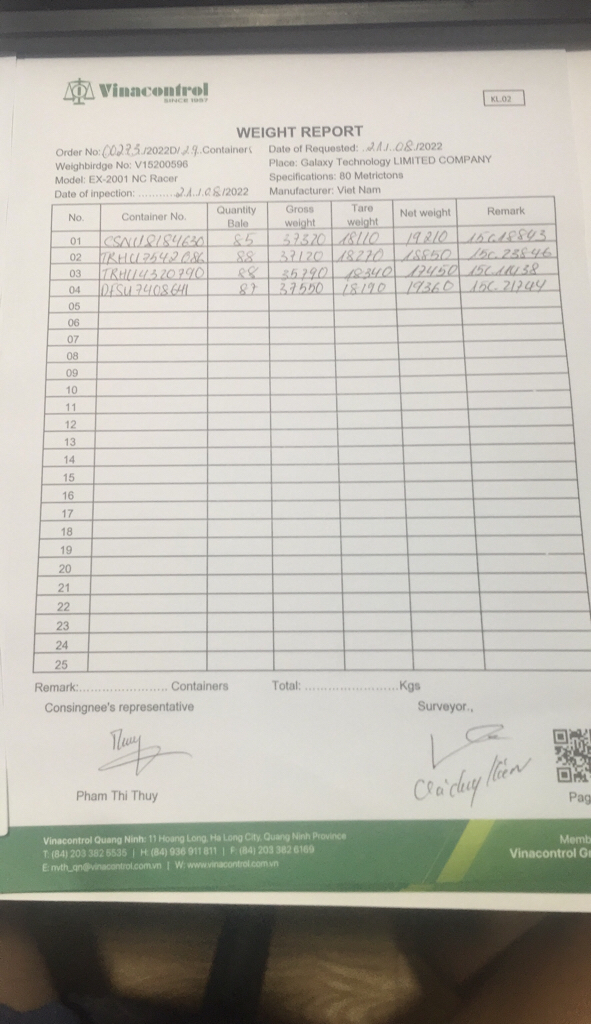 Vinacontrol
SINCE 1957
KL.02
WEIGHT REPORT
Order No: 00275/2022D/29 Containers Date of Requested: 21/08/2022
Weighbirdge No: V15200596 Place: Galaxy Technology LIMITED COMPANY
Model: EX-2001 NC Racer Specifications: 80 Metrictons
Date of inpection: ........... 21/08/2022 Manufacturer: Viet Nam
No. Container No. Quantity Bale Gross weight Tare weight Net weight Remark
01 85 37320 18110 19210 15C.18843
02 88 37120 18270 18850 15C.23846
03 TRHU4320790 88 35790 18340 17450
04 87 37550 18190 19360 15C.21744
05
06
07
08
09
10
11
12
13
14
15
16
17
18
19
20
21
22
23
24
25
Remark:........................ Containers Total: .........................Kgs
Consingnee's representative Surveyor.,
Thuy
Pham Thi Thuy
Pag
Vinacontrol Quang Ninh: 11 Hoang Long, Ha Long City, Quang Ninh Province
T: (84) 203 382 6535 | H: (84) 936 911 811 | F: (84) 203 382 6169
E: nvth_qn@vinacontrol.com.vn | W: www.vinacontrol.com.vn
Memb
Vinacontrol Gr